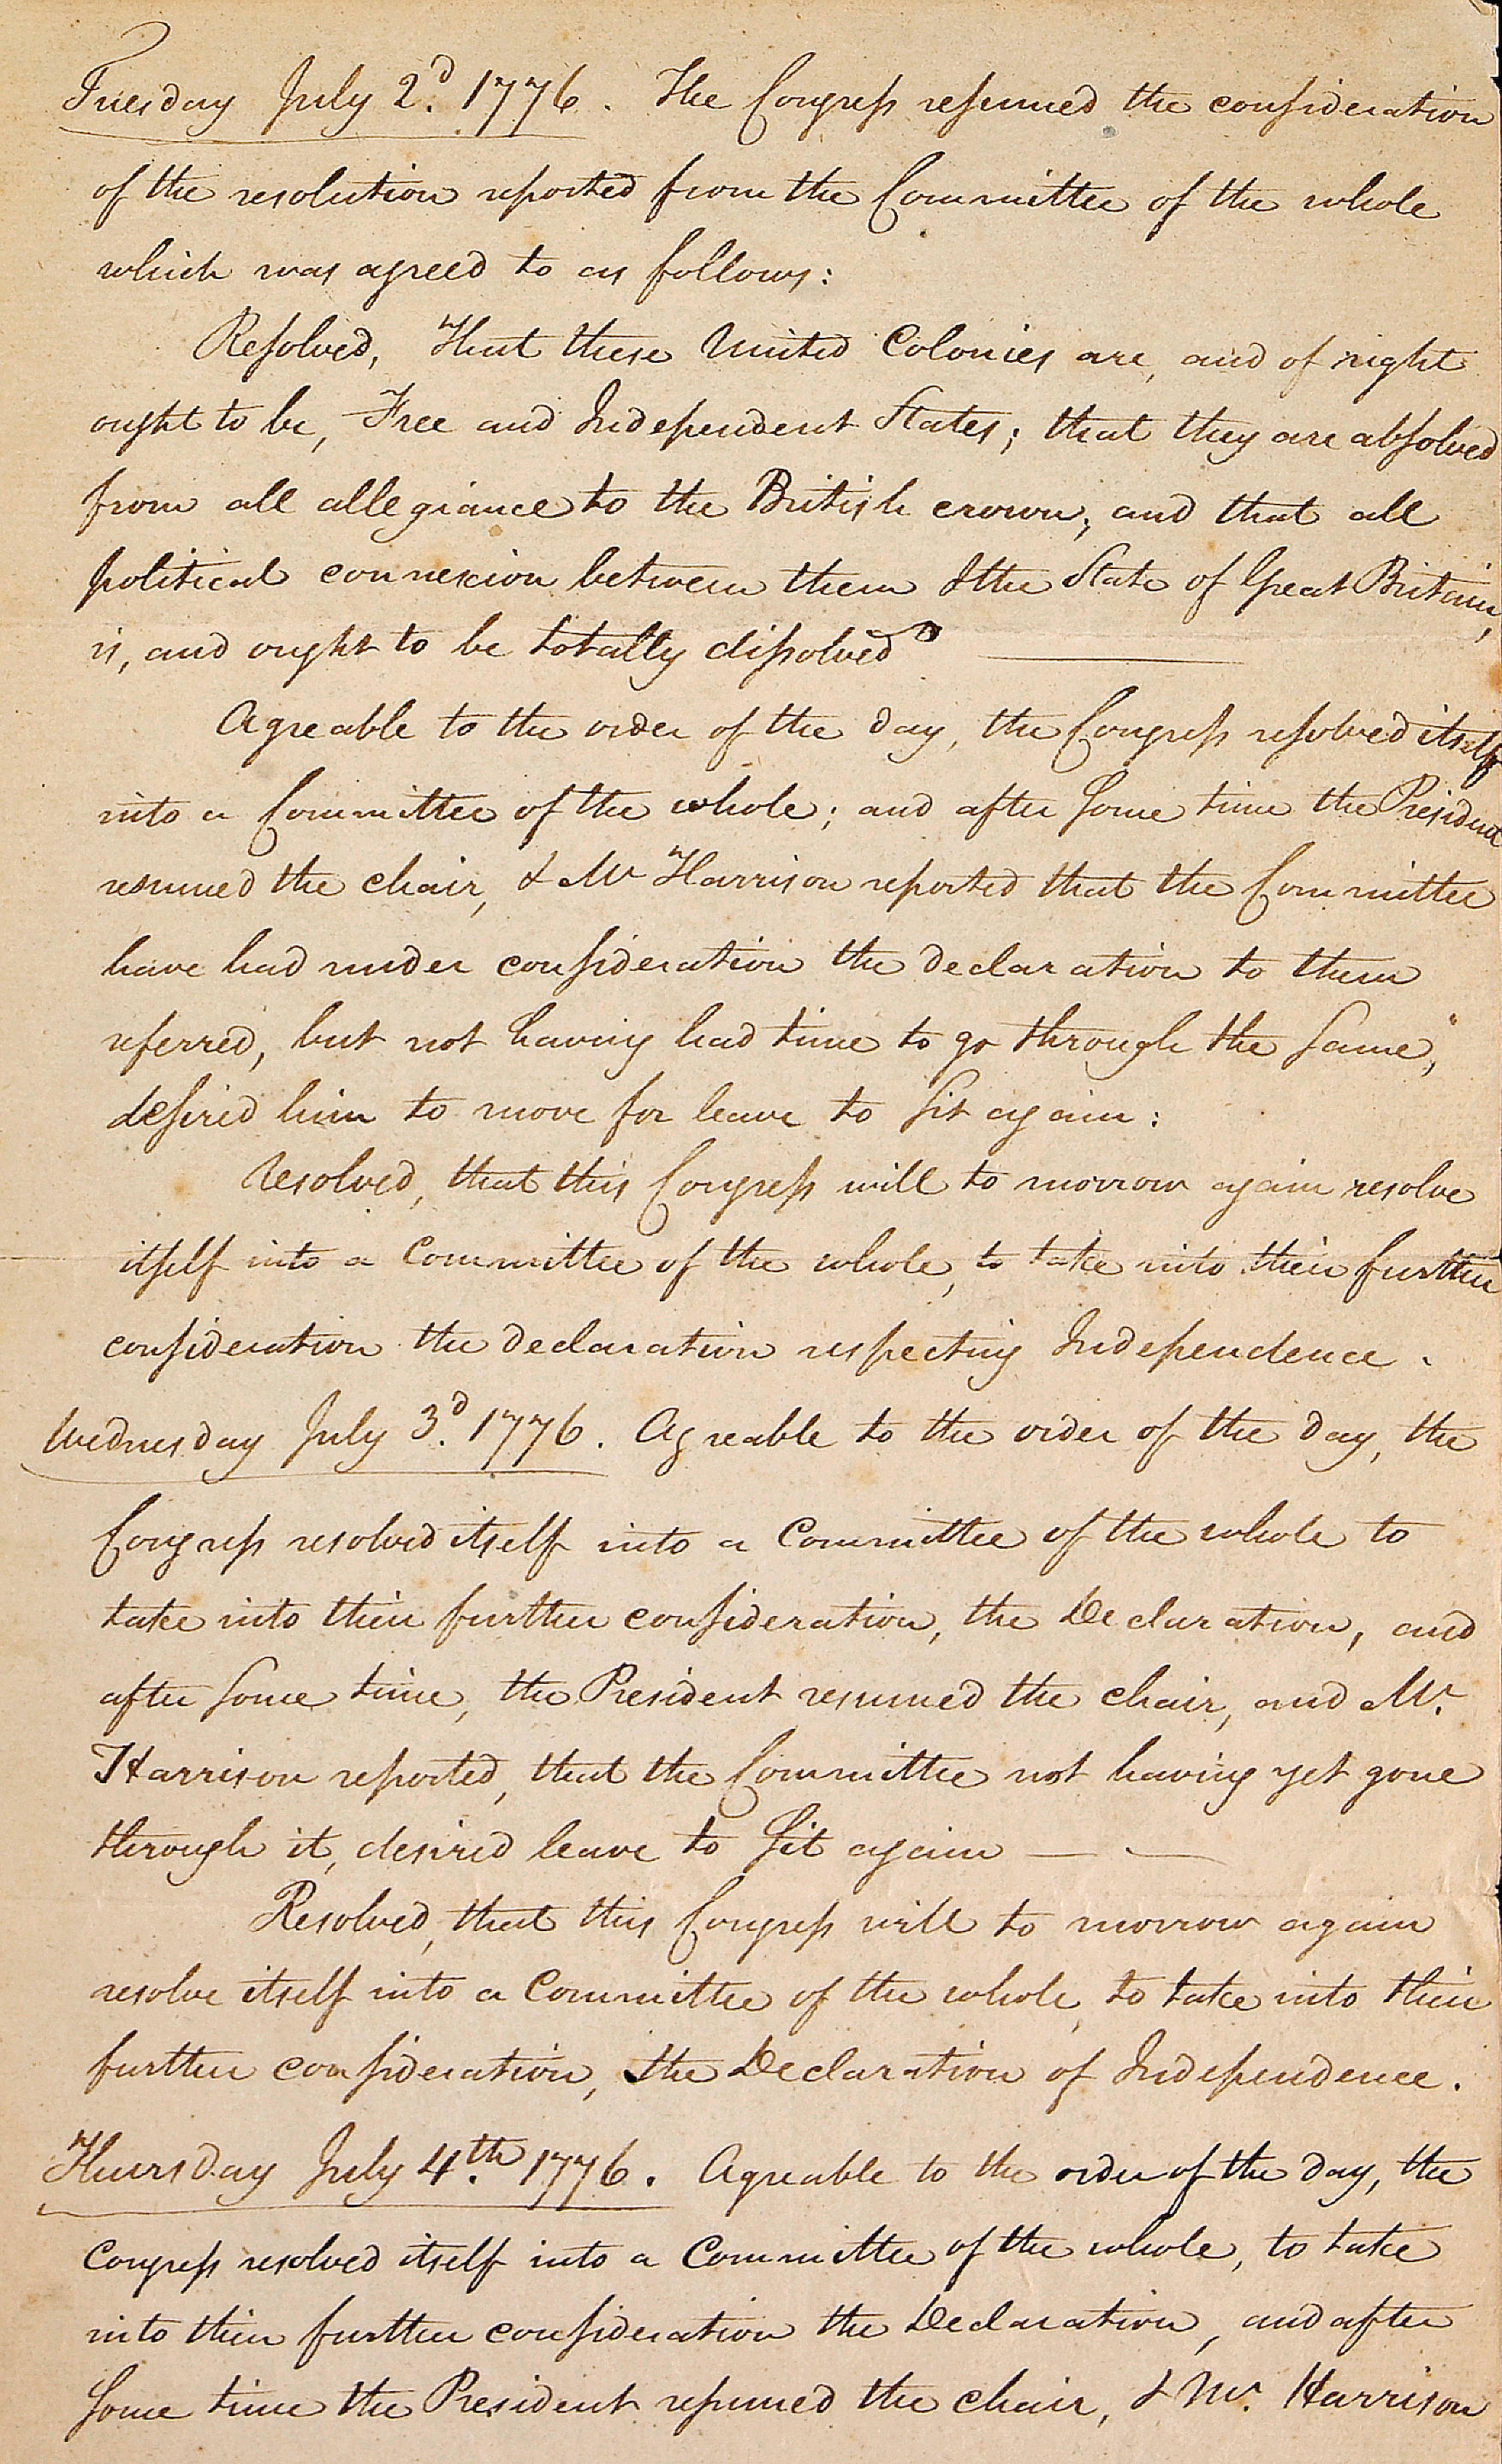 Tuesday July 2d. 1776. The Congress resumed the consideration
of the resolution reported from the Committee of the whole
which was agreed to as follows:
Resolved, That these United Colonies are, and of right
ought to be, Free and Independent States; that they are absolved
from all allegiance to the British crown; and that all
political connexion between them & the State of Great Britain,
is, and ought to be totally dissolved
Agreable to the order of the day, the Congress resolved itself
into a Committee of the whole; and after some time the President
resumed the chair, & Mr Harrison reported that the Committee
have had under consideration the declaration to them
referred, but not having had time to go through the same,
desired him to move for leave to sit again:
Resolved, that this Congress will to morrow again resolve
itself into a Committee of the whole, to take into their further
consideration the declaration respecting Independence.
Wednesday July 3d. 1776. Agreable to the order of the day, the
Congress resolved itself into a Committee of the whole to
take into their further consideration, the Declaration, and
after some time, the President resumed the chair, and Mr.
Harrison reported, that the Committee not having yet gone
through it, desired leave to sit again — —
Resolved, that this Congress will to morrow again
resolve itself into a Committee of the whole, to take into their
further consideration, the Declaration of Independence.
Thursday July 4.th 1776. Agreable to the order of the day, the
Congress resolved itself into a Committee of the whole, to take
into their further consideration the Declaration, and after
some time the President resumed the chair, & Mr. Harrison